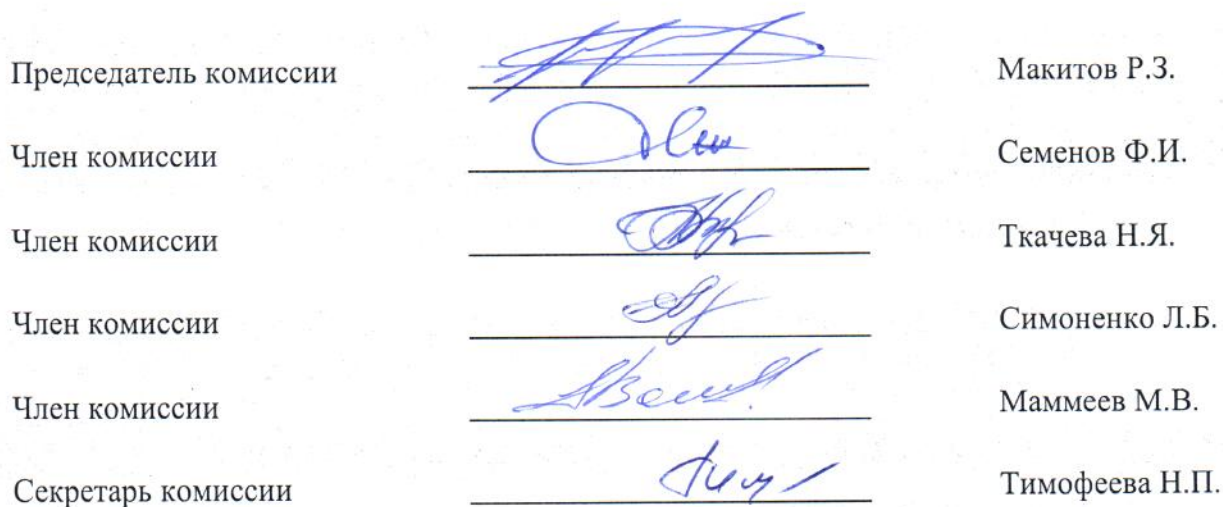 Председатель комиссии Макитов Р.З.
Член комиссии Семенов Ф.И.
Член комиссии Ткачева Н.Я.
Член комиссии Симоненко Л.Б.
Член комиссии Маммеев М.В.
Секретарь комиссии Тимофеева Н.П.